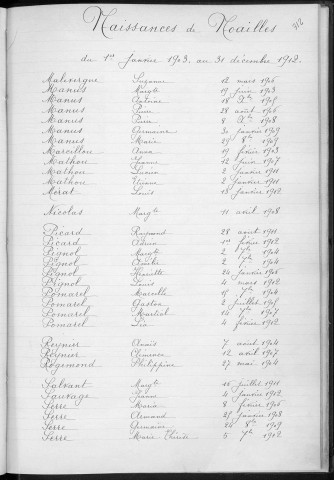 Naissances de Noailles
312
du 1er Janvier 1903 au 31 décembre 1912.
Malevergue Suzanne 12 mars 1906
Manus Margte 19 juin 1903
Manus Antoine 18 1905
Manus Pierre 28 août 1906
Manus Pierre 8 1908
Manus Germaine 30 janvier 1909
Manus Maria 29 1909
Marcillou Anna 19 février 1903
Mathou Jeanne 12 juin 1907
Mathou Lucien 2 janvier 1911
Mathou Etienne 2 janvier 1911
Mérat Louis 13 janvier 1912
Nicolas Margte 11 avril 1908
Picard Raymond 28 août 1911
Picard Adrien 1er février 1912
Pignol Margte 2 1904
Pignol 2 1904
Pignol Henriette 24 janvier 1906
Pignol Louis 4 mars 1912
Pomarel Marcelle 15 1904
Pomarel Gaston 2 juillet 1905
Pomarel Martial 14 1907
Pomarel Léa 4 février 1912
Reynier Anaïs 7 août 1904
Reynier Clémence 12 avril 1907
Rogemond Philippine 27 mai 1904
Salvant Margte 16 juillet 1911
Sauvage Jeanne 4 janvier 1912
Serre Maria 8 février 1906
Serre Armand 25 janvier 1908
Serre Germaine 24 1909
Serre Marie Thérèse 5 1912